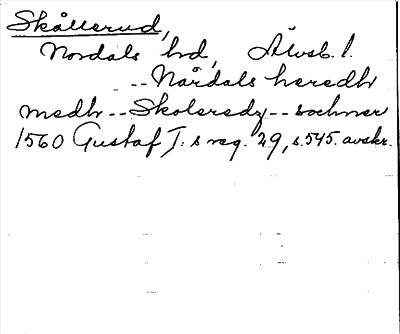 Skållerud,
Nordals hd, Älvsb. l.
-- Nårdals heredhr
medhr -- Skoleredz -- sochner
1560 Gustaf I:s reg. 29, s. 545. avskr.